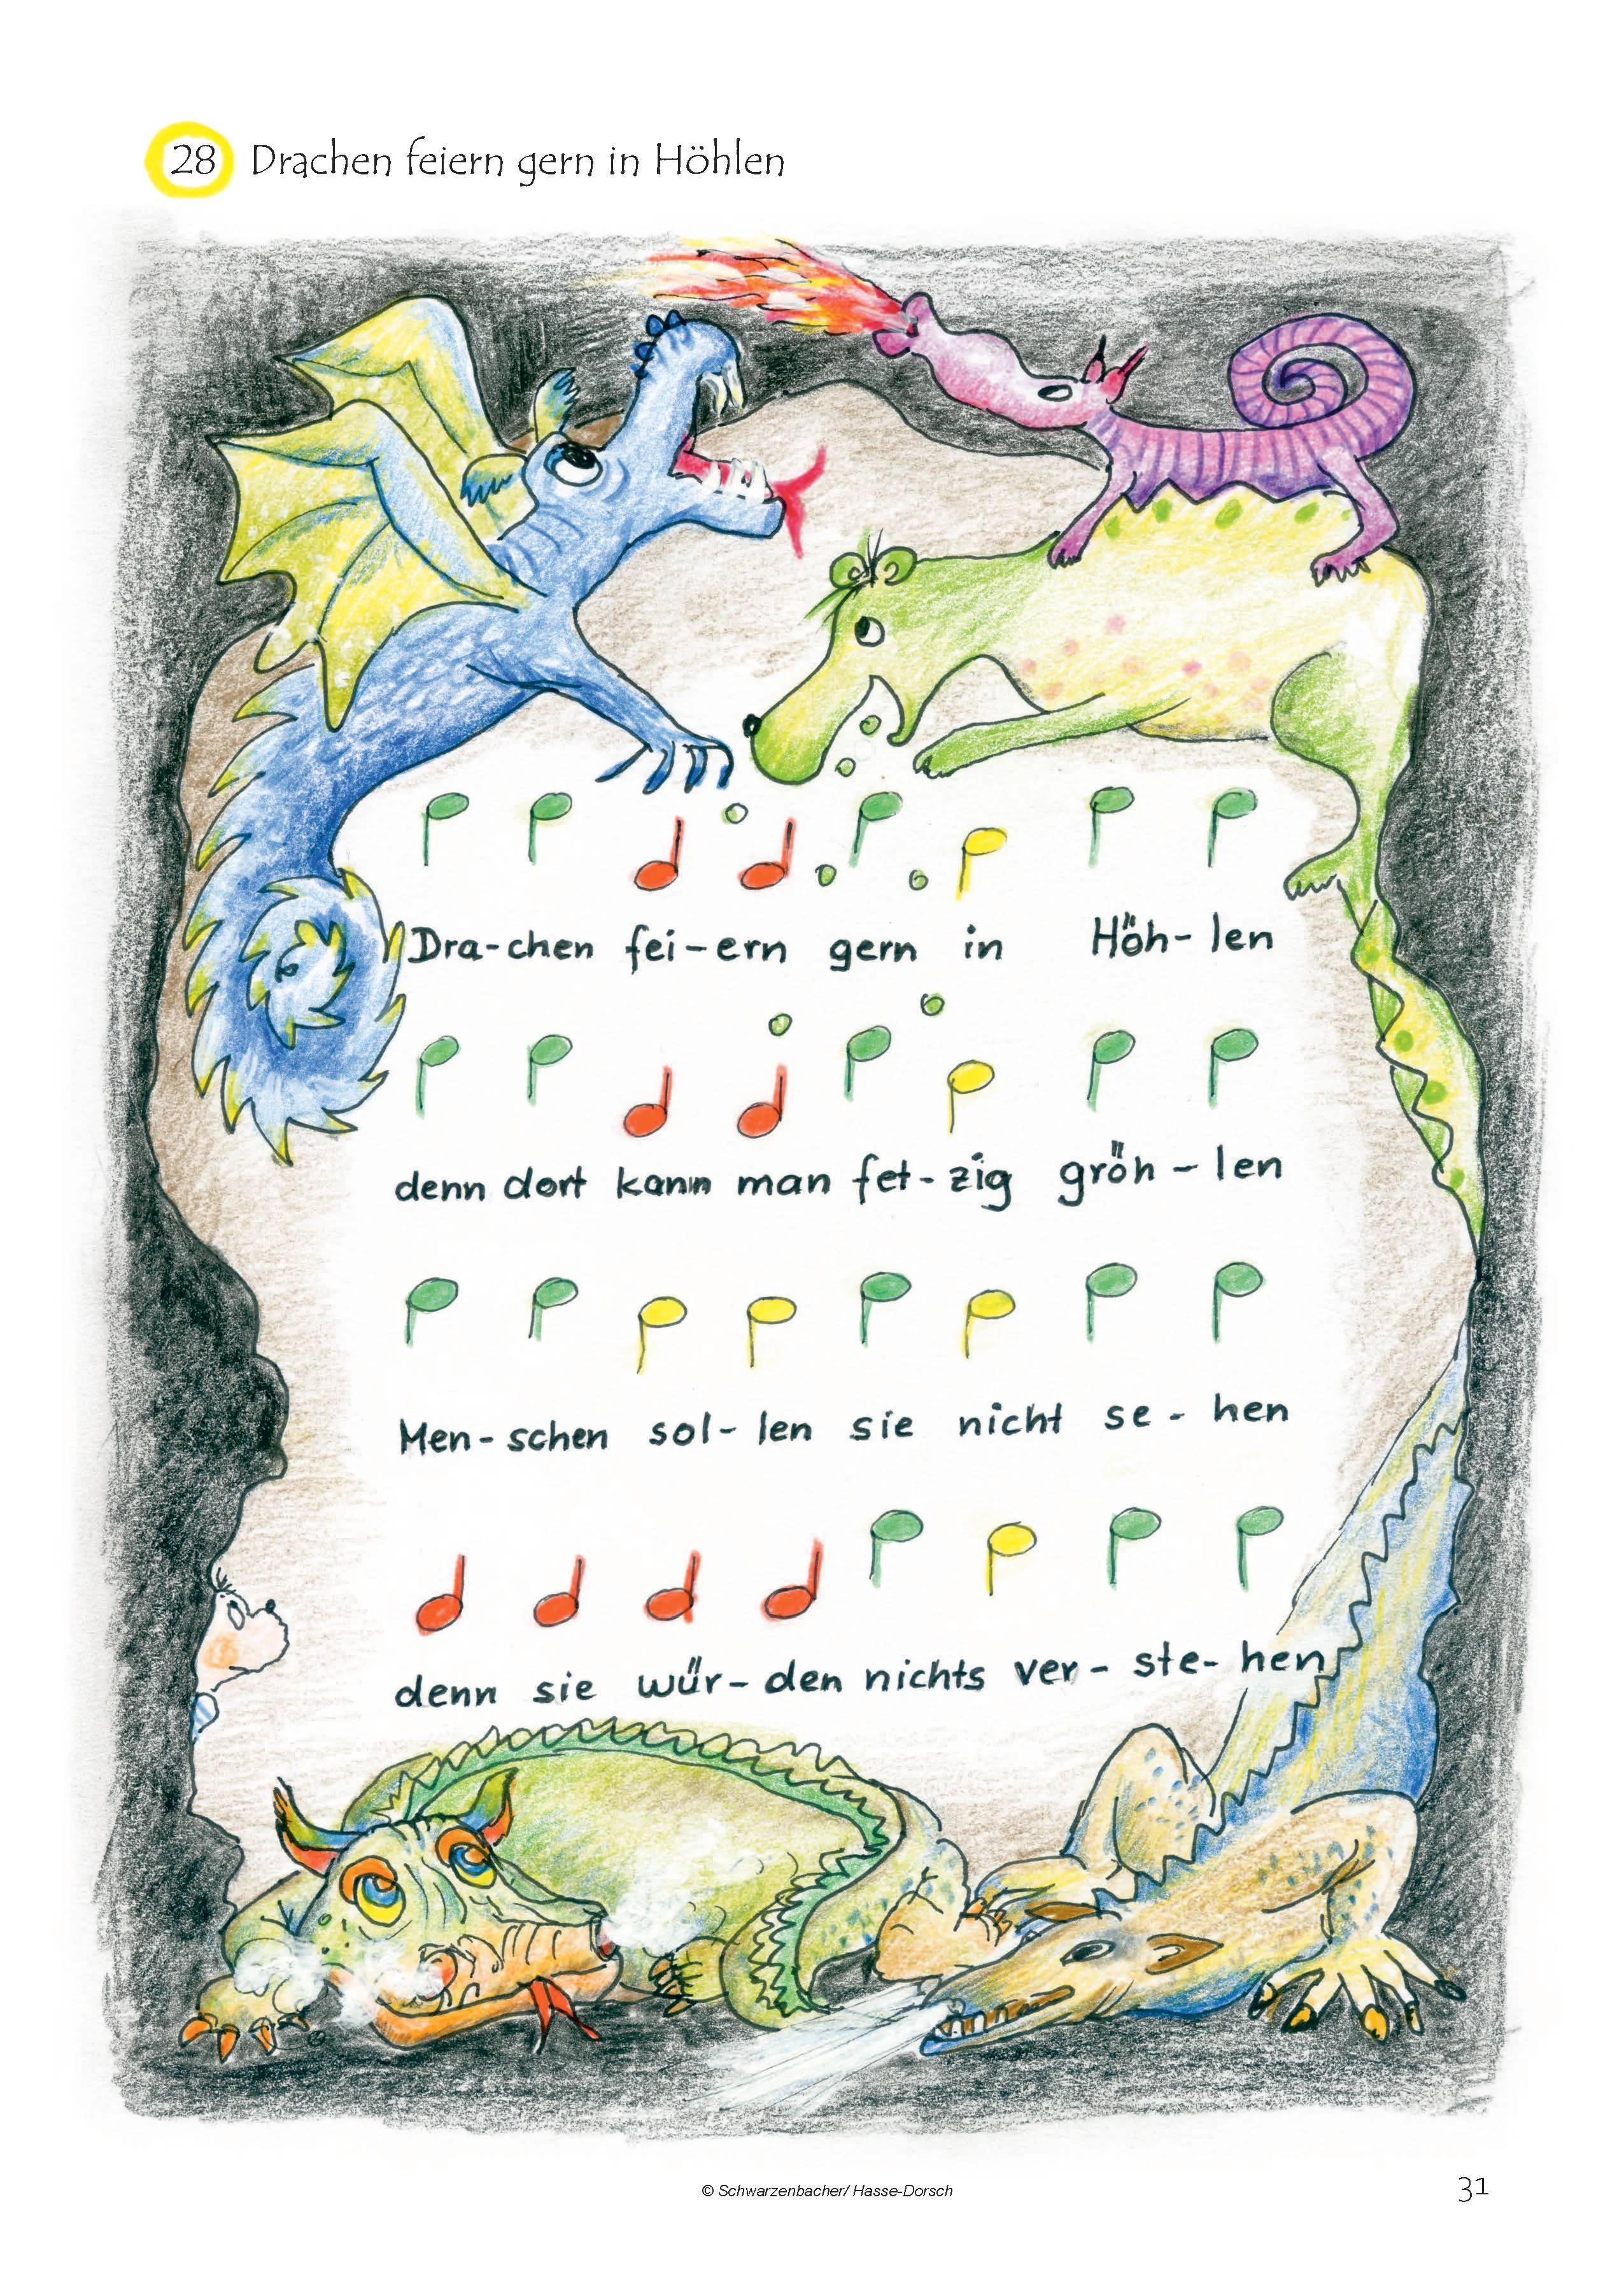 28 Drachen feiern gern in Höhlen
Dra-chen fei-ern gern in Höh-len
denn dort kann man fet-zig gröh-len
Men-schen sol-len sie nicht se-hen
denn sie wür-den nichts ver-ste-hen
© Schwarzenbacher/ Hasse-Dorsch
31